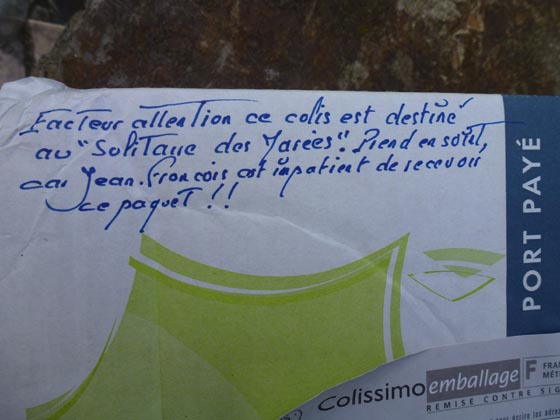 Facteur attention ce colis est destiné
au "Solitaire des Marées". Prend en soin,
car Jean-François est impatient de recevoir
ce paquet !!
PORT PAYÉ
Colissimo emballage F FRAN
MÉT
REMISE CONTRE SIG